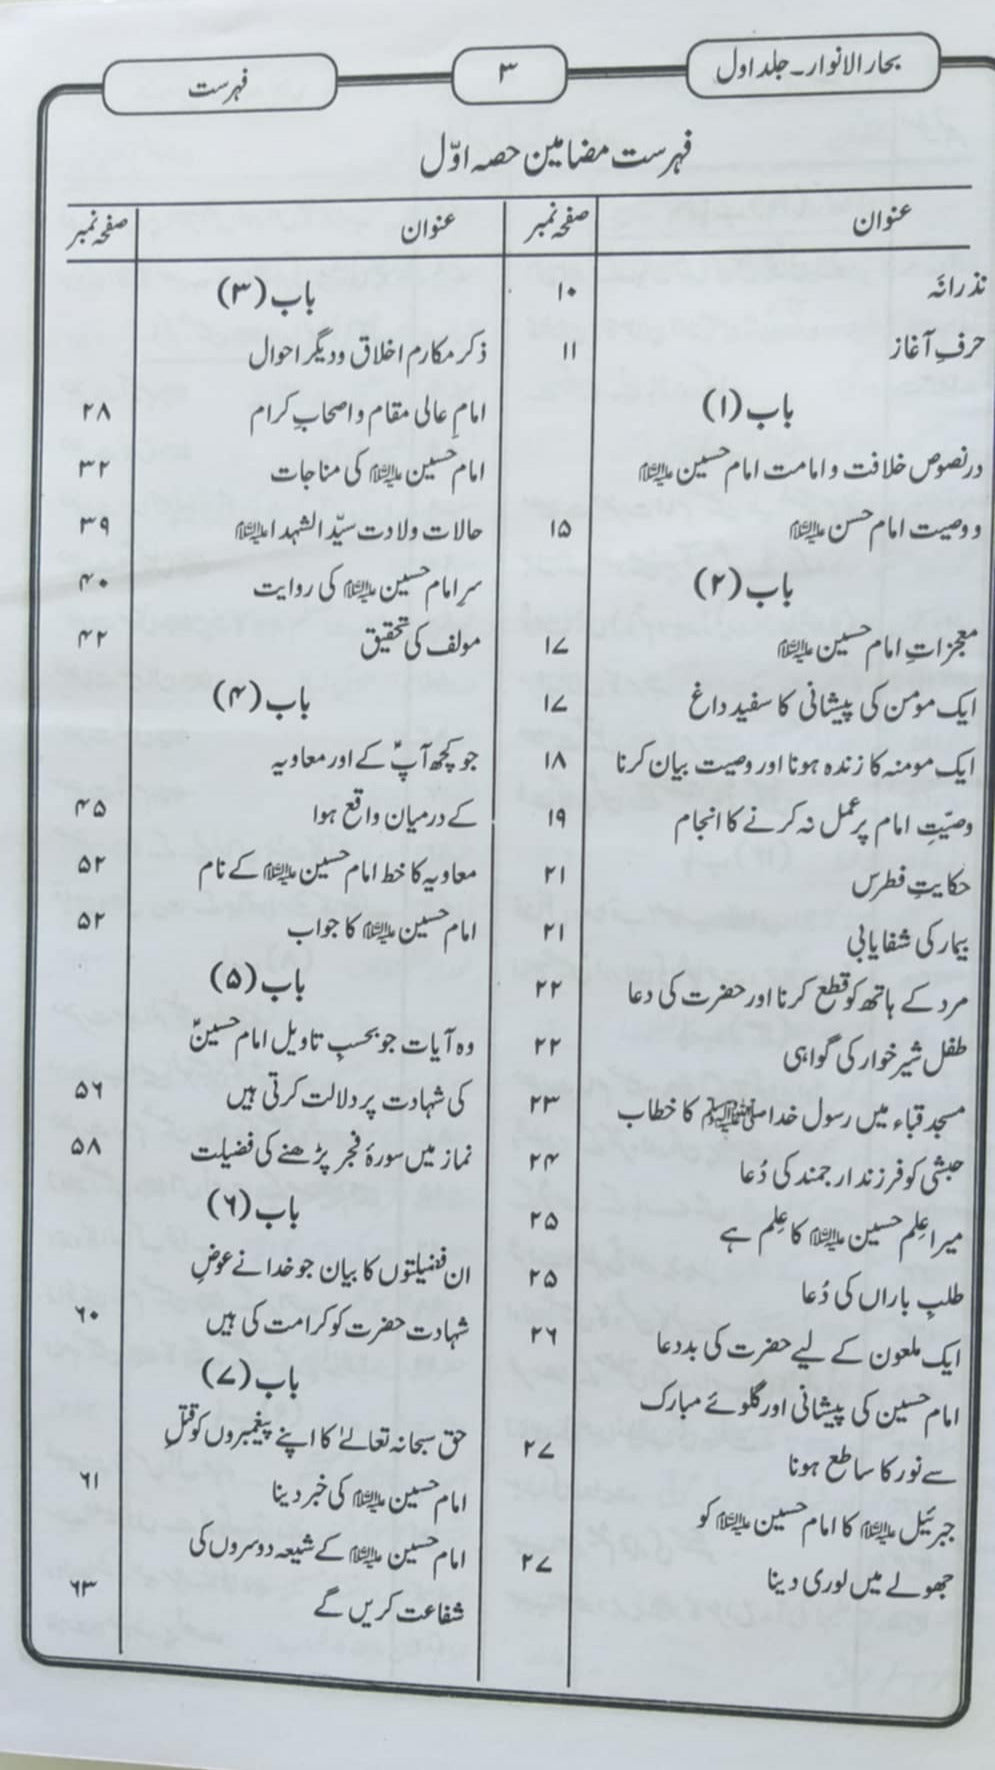 بحار الانوار۔ جلد اول
۳
فہرست
فہرست مضامین حصہ اوّل
عنوان صفحہ نمبر
نذرانہ ۱۰
حرفِ آغاز ۱۱
باب (۱)
در نصوص خلافت و امامت امام حسین علیہ السلام
و وصیت امام حسن علیہ السلام ۱۵
باب (۲)
معجزاتِ امام حسین علیہ السلام ۱۷
ایک مومن کی پیشانی کا سفید داغ ۱۷
ایک مومنہ کا زندہ ہونا اور وصیت بیان کرنا ۱۸
وصیّتِ امام پر عمل نہ کرنے کا انجام ۱۹
حکایتِ فطرس ۲۱
بیمار کی شفایابی ۲۱
مرد کے ہاتھ کو قطع کرنا اور حضرت کی دعا ۲۲
طفل شیر خوار کی گواہی ۲۲
مسجد قباء میں رسول خدا صلی اللہ علیہ وسلم کا خطاب ۲۳
حبشی کو فرزند ارجمند کی دُعا ۲۴
میرا عِلم حسین علیہ السلام کا عِلم ہے ۲۵
طلبِ باراں کی دُعا ۲۵
ایک ملعون کے لیے حضرت کی بددعا ۲۶
امام حسین کی پیشانی اور گلوئے مبارک
سے نور کا ساطع ہونا ۲۷
جبرئیل علیہ السلام کا امام حسین علیہ السلام کو
جھولے میں لوری دینا ۲۷
عنوان صفحہ نمبر
باب (۳)
ذکر مکارم اخلاق و دیگر احوال
امامِ عالی مقام و اصحابِ کرام ۲۸
امام حسین علیہ السلام کی مناجات ۳۲
حالات ولادت سیّد الشہدا علیہ السلام ۳۹
سرِ امام حسین علیہ السلام کی روایت ۴۰
مولف کی تحقیق ۴۲
باب (۴)
جو کچھ آپؑ کے اور معاویہ
کے درمیان واقع ہوا ۴۵
معاویہ کا خط امام حسین علیہ السلام کے نام ۵۲
امام حسین علیہ السلام کا جواب ۵۲
باب (۵)
وہ آیات جو بحسبِ تاویل امام حسینؑ
کی شہادت پر دلالت کرتی ہیں ۵۶
نماز میں سورۂ فجر پڑھنے کی فضیلت ۵۸
باب (۶)
ان فضیلتوں کا بیان جو خدا نے عوضِ
شہادت حضرت کو کرامت کی ہیں ۶۰
باب (۷)
حق سبحانہ تعالےٰ کا اپنے پیغمبروں کو قتلِ
امام حسین علیہ السلام کی خبر دینا ۶۱
امام حسین علیہ السلام کے شیعہ دوسروں کی
شفاعت کریں گے ۶۳